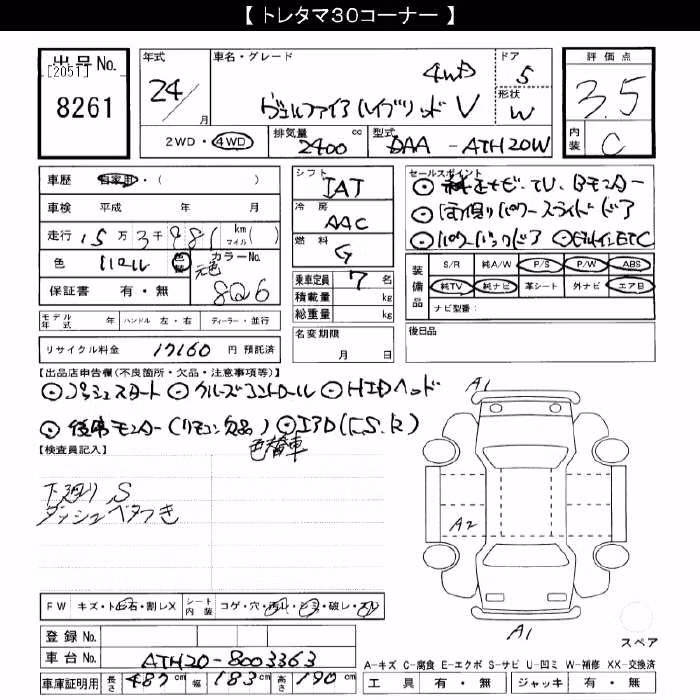 【 トレタマ30コーナー 】
出品No.
[2051]
8261
年式
24/
月
車名・グレード
4WD
ヴェルファイア ハイブリッド V
ドア
5
形状
W
評価点
3.5
内装
C
2WD・4WD
排気量
2400 cc
型式
DAA - ATH20W
車歴 自家用・( )
車検 平成 年 月
走行 15万3千881 km (マイル)( )
色 パール 色替
元色
カラーNo.
8Q6
保証書 有・無
モデル年式 年 ハンドル 左・右 ディーラー・並行
リサイクル料金 17160 円 預託済
シフト
IAT
冷房
AAC
燃料
G
乗車定員 7 名
積載量 kg
総重量 kg
名変期限
月 日
セールスポイント
⊙ 純正ナビ・TV、Bモニター
⊙ 両側パワースライドドア
⊙ パワーバックドア ⊙ ビルトインETC
装備品
S/R 純A/W P/S P/W ABS
純TV 純ナビ 革シート 外ナビ エアB
ナビ型番:
後日品
【出品店申告欄(不良箇所・欠品・注意事項等)】
⊙プッシュスタート ⊙クルーズコントロール ⊙HIDヘッド
⊙後席モニター(リモコン欠品) ⊙エアD(F.S.R)
【検査員記入】
色替車
下廻り S
ダッシュベタつき
A1
A2
A1
スペア
FW キズ・トビ石・割レX シート内装 コゲ・穴・汚レ・シミ・破レ・スレ
登録No.
車台No. ATH20-8003363
車庫証明用 長さ 487cm 幅 183cm 高さ 190cm
A-キズ C-腐食 E-エクボ S-サビ U-凹ミ W-補修 XX-交換済
工具 有・無 ジャッキ 有・無